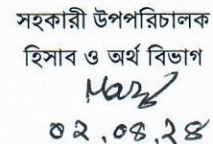 সহকারী উপপরিচালক
হিসাব ও অর্থ বিভাগ
০২.০৪.২৪